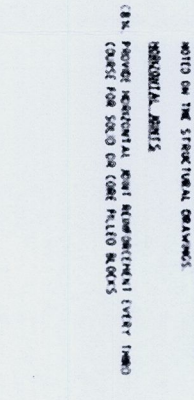 NOTED ON THE STRUCTURAL DRAWINGS.
HORIZONTAL JOINTS
PROVIDE HORIZONTAL JOINT REINFORCEMENT EVERY THIRD
COURSE FOR SOLID OR CORE FILLED BLOCKS